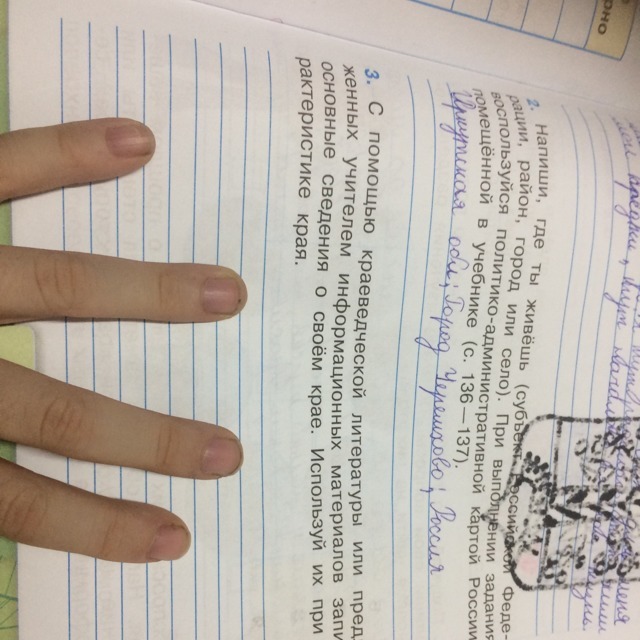 оно
2. Напиши, где ты живёшь (субъект Российской Феде-
рации, район, город или село). При выполнении задания
воспользуйся политико-административной картой России,
помещённой в учебнике (с. 136—137).
Иркутская обл; Город Черемхово; Россия
3. С помощью краеведческой литературы или пред
женных учителем информационных материалов запи
основные сведения о своём крае. Используй их при
рактеристике края.